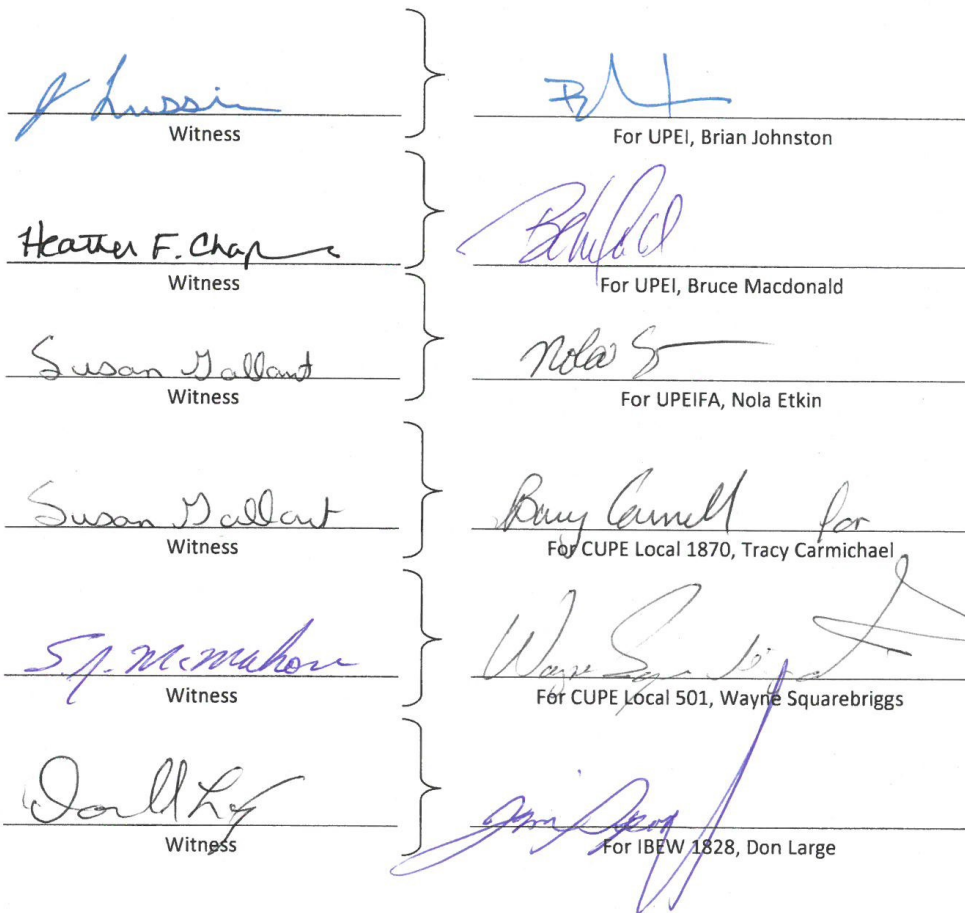 Lussi
Witness
For UPEI, Brian Johnston
Heather F. Chap
Witness
For UPEI, Bruce Macdonald
Susan Gallant
Nola
Witness
For UPEIFA, Nola Etkin
Susan Gallant
Barry for
Witness
For CUPE Local 1870, Tracy Carmichael
S.J. McMahon
Wayne
Witness
For CUPE Local 501, Wayne Squarebriggs
Witness
For IBEW 1828, Don Large